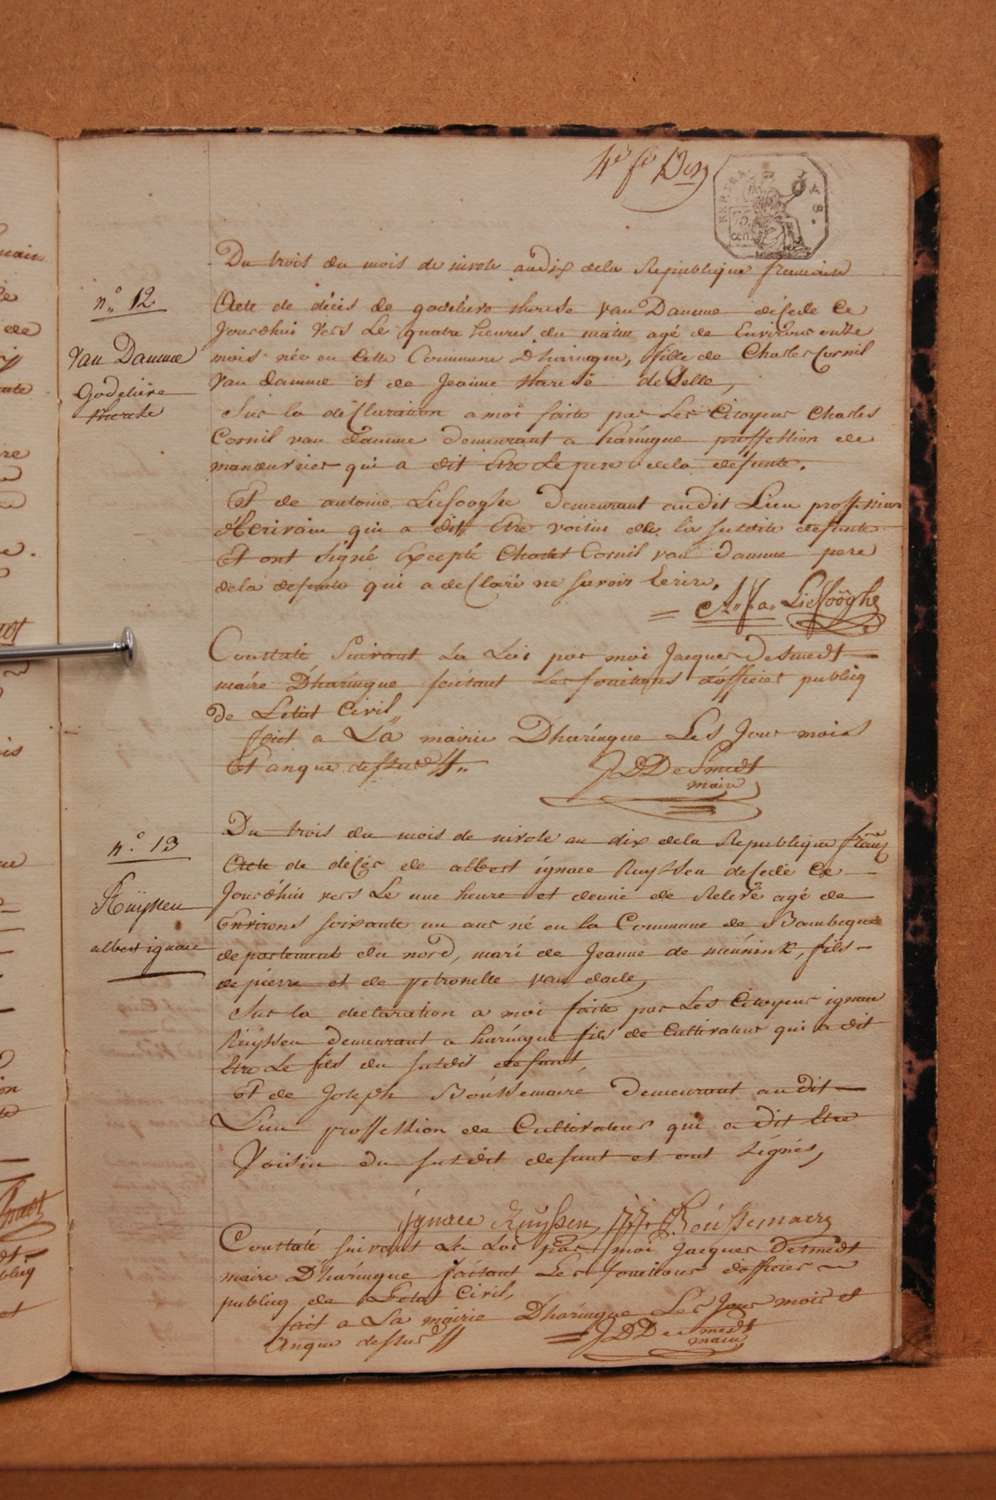 Du trois du mois de nivose an dix de la Republique francaise
n.° 12
Van Damme
Godelieve
therese
Acte de décès de godelieve therese van Damme décede ce
Jourd'hui vers Le quatre heures du matin agé de Environs onze
mois née en Cette Commune D'haringue, fille de Charles Cornil
van damme et de Jeanne therese
Sur la déClaration a moi faite par Les Citoyens Charles
Cornil van Damme demeurant a haringue proffession de
manoeuvrier qui a dit être Le pere de la défunte.
Et de antoine Liefooghe demeurant audit Lieu proffession
d'Ecrivain qui a dit être voisin de la susdite defunte
Et ont signé Excepté Charles Cornil van damme pere
de la defunte qui a deClaré ne savoir Ecrire.
Liefooghe
Constaté Suivant La Loi par moi Jacques DeSmedt
maire D'haringue faisant Les fonctions d'officier publicq
De L'état Civil
fait a La mairie D'haringue Les Jour mois
Et anque dessus
J D DeSmedt
maire
n.° 13
Ruyssen
albert ignace
Du trois du mois de nivose an dix de la Republique franç
Acte de décès de albert ignace Ruyssen decedé Ce
Jourd'hui vers Le une heure et demie de Relevé agé de
Environs soixante un ans né en la Commune de Bambeque
departement du nord, mari de Jeanne de meunink, fils
de pierre et de petronelle van daele,
Sur la declaration a moi faite par Les Citoyens ignace
Ruyssen demeurant a haringue fils de Cultivateur qui a dit
être Le fils du susdit defunt,
Et de Joseph Boussemaire demeurant audit
Lieu proffession de Cultivateur qui a dit être
Voisin du susdit defunt et ont signés,
ignace Ruyssen J J Boussemaere
Constaté suivant La Loi par moi Jacques Desmedt
maire D'haringue faisant Les fonctions d'officier
publicq de L'état Civil,
fait a La mairie D'haringue Les Jour mois et
Anque dessus
J D DeSmedt
maire